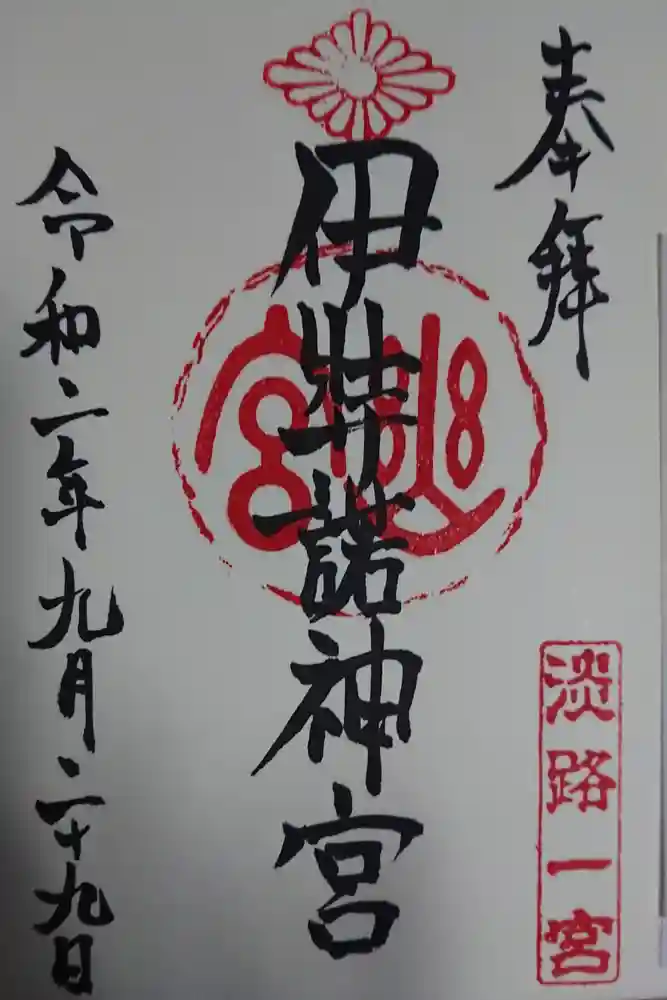 奉拝
淡路一宮
伊弉諾神宮
令和二年九月二十九日